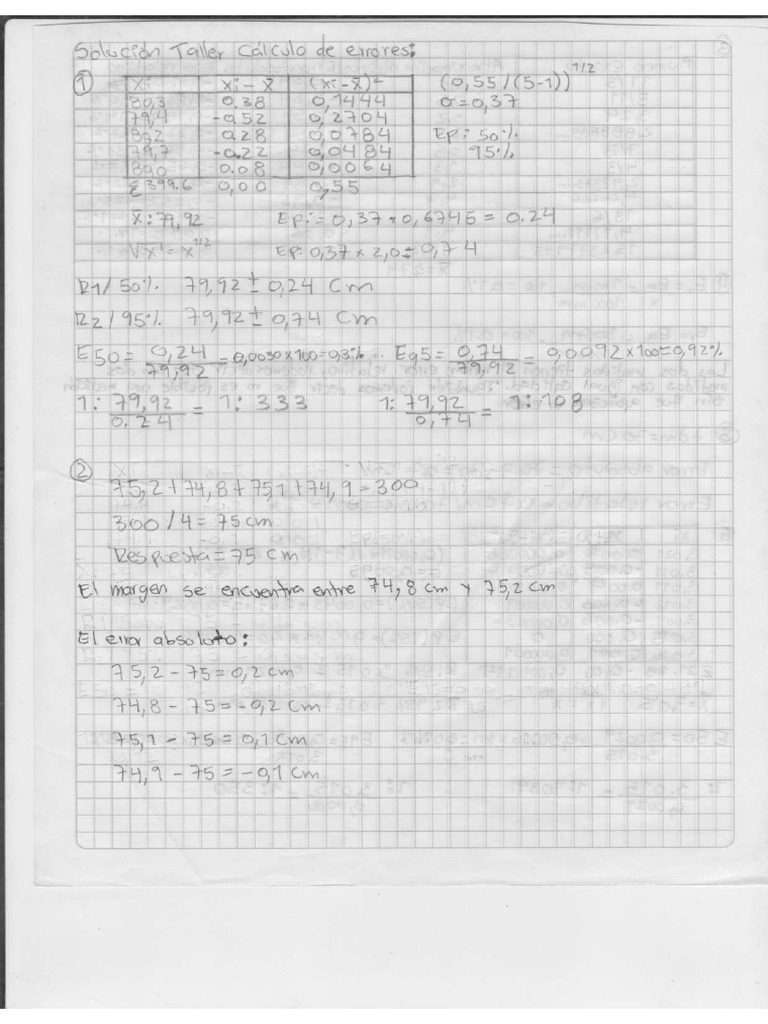 Solución Taller Cálculo de errores:
① Xi | Xi - X̄ | (Xi - X̄)² (0,55/(5-1))^1/2
80,3 | 0.38 | 0,1444 σ=0,37
79,4 | -0,52 | 0,2704
80,2 | 0.28 | 0,0784 Ep: 50%
79,7 | -0.22 | 0,0484 95%
80,0 | 0.08 | 0,0064
Σ 399.6 | 0,00 | 0,55
X̄: 79,92 Ep:= 0,37 x 0,6745 = 0.24
√x = x^1/2 Ep: 0,37 x 2,0 = 0,74
R1/50% 79,92 ± 0,24 Cm
R2/95% 79,92 ± 0,74 Cm
E50 = 0,24/79,92 = 0,0030x100=0,3% E95 = 0,74/79,92 = 0,0092x100=0,92%
1: 79,92/0.24 = 1: 333 1: 79,92/0,74 = 1:108
②
75,2+74,8+75,1+74,9=300
300/4=75cm
Respuesta=75 cm
El margen se encuentra entre 74,8 cm y 75,2 cm
El error absoluto:
75,2 - 75 = 0,2 cm
74,8 - 75 = -0,2 cm
75,1 - 75 = 0,1 cm
74,9 - 75 = -0,1 cm